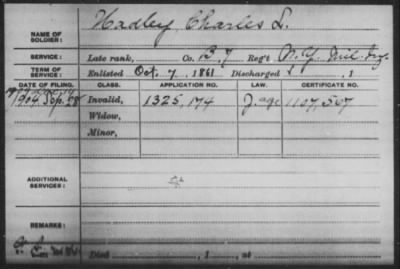 NAME OF SOLDIER: Hadley, Charles L.
SERVICE: Late rank, Co. B, 7 Reg't N.Y. Mil. Inf.
TERM OF SERVICE: Enlisted Oct. 7, 1861 Discharged , 1
DATE OF FILING. CLASS. APPLICATION NO. LAW. CERTIFICATE NO.
1904 Sep. 28 Invalid, 1325,174 1107,567
Widow,
Minor,
ADDITIONAL SERVICES:
REMARKS:
Died , 1 , at